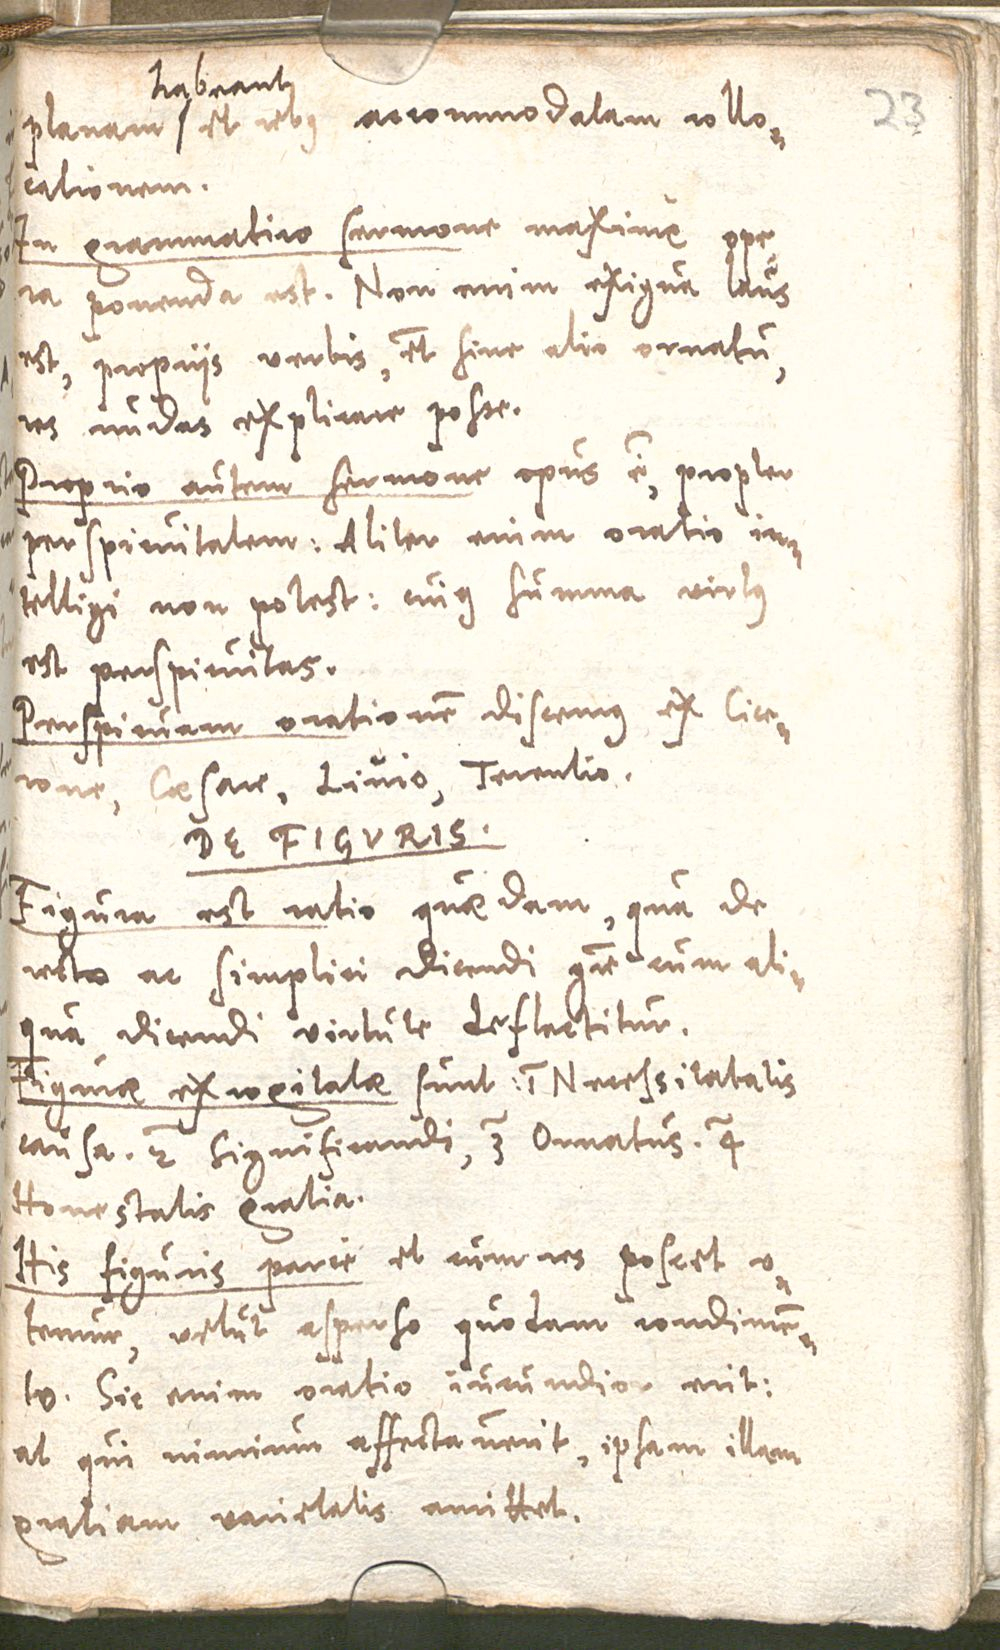 habeant
planam / et rebus accommodatam collo„ 23
cationem.
In grammatico sermone maxime ope
ra ponenda est. Non enim exigua laus
est, proprijs verbis, et sine alio ornatu,
res nudas explicare posse.
Proprio autem sermone opus ē, propter
perspicuitatem: Aliter enim oratio in„
telligi non potest: cuius summa virtus
est perspicuitas.
Perspicuam orationē discemus ex Cice„
rone, Cæsare, Livio, Terentio.
DE FIGVRIS.
Figura est ratio quædam, qua de
recto ac simplici dicendi gñe cum ali„
qua dicendi virtute deflectitur.
Figuræ excogitatæ sunt: 1 Necessitatatis
causa. 2 Significandi, 3 Ornatus. 4
Honestatis gratia.
His figuris parce et cum res poscet v„
temur, velut asperso quodam condimē„
to. Sic enim oratio iucundior erit:
at qui nimium affectaverit, ipsam illam
gratiam varietatis amittet.